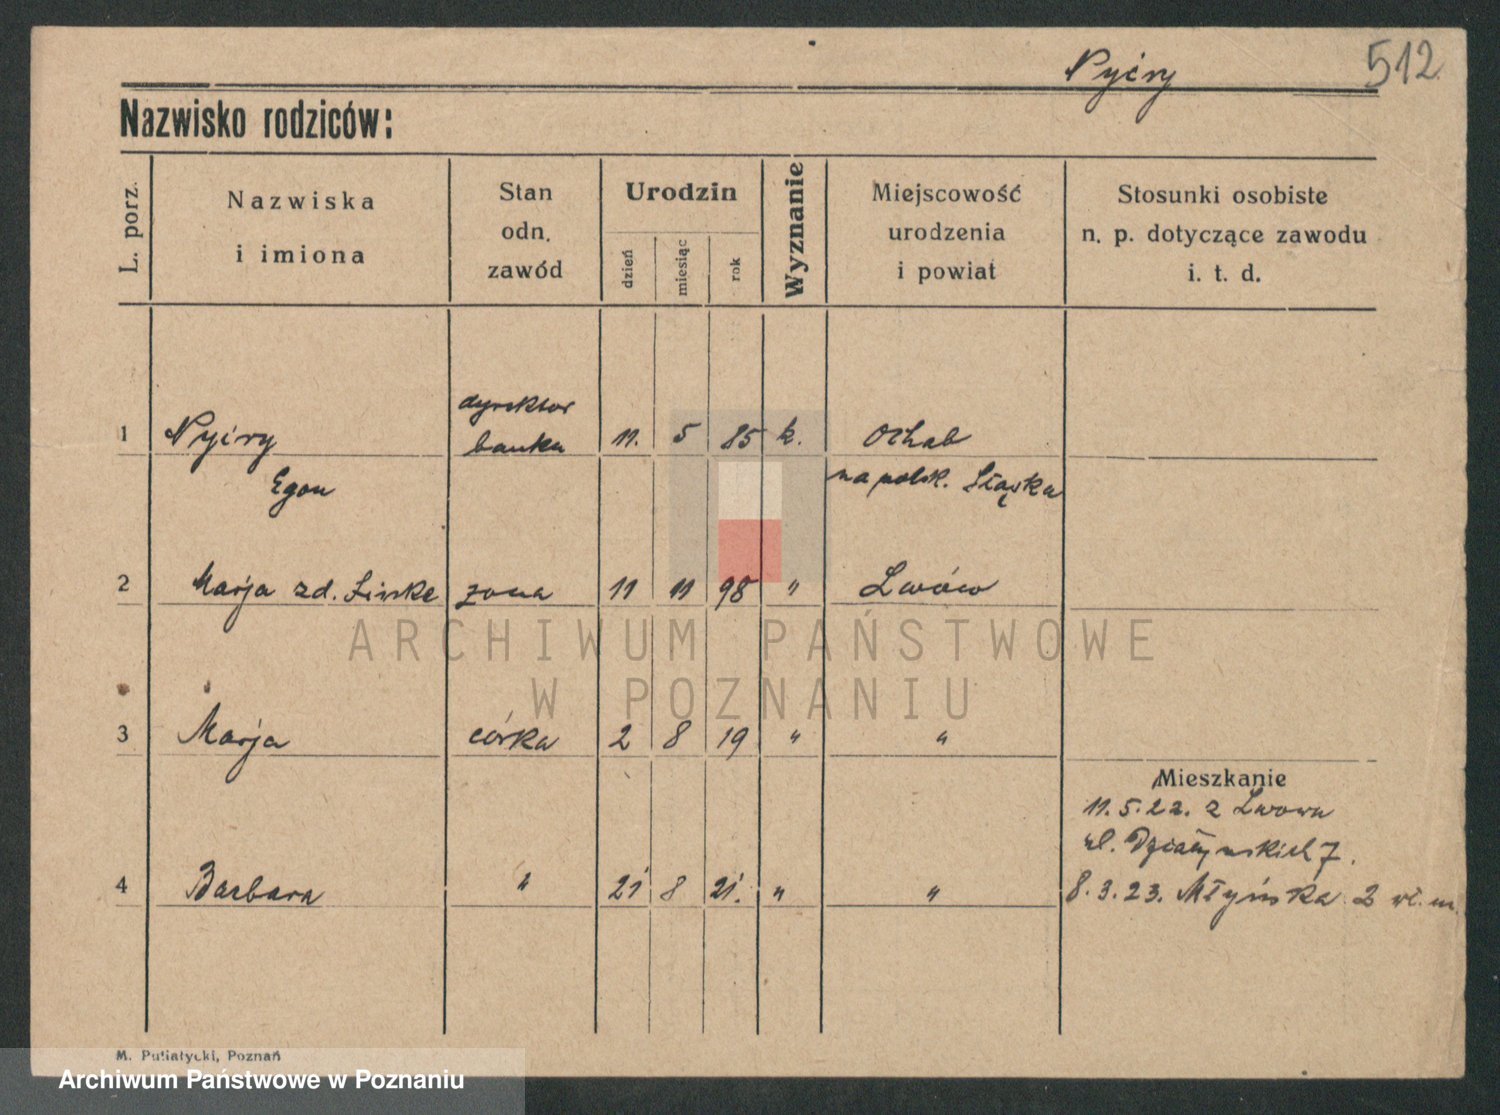 Nyiry 512
Nazwisko rodziców:
L. porz.
Nazwiska
i imiona
Stan
odn.
zawód
Urodzin
dzień
miesiąc
rok
Wyznanie
Miejscowość
urodzenia
i powiat
Stosunki osobiste
n. p. dotyczące zawodu
i. t. d.
dyrektor
1 Nyiry banku 11. 5 85 k. Ochab
Egon na polsk. Śląsku
2 Marja zd. żona 11 11 98 " Lwów
ARCHIWUM PAŃSTWOWE
W POZNANIU
3 Marja córka 2 8 19 " "
Mieszkanie
11.5.22. z Lwowa
ul. Działyńskich 7.
4 Barbara " 21 8 21. " "
8.3.23. Młyńska 2 wł. m.
M. Putiatycki, Poznań
Archiwum Państwowe w Poznaniu